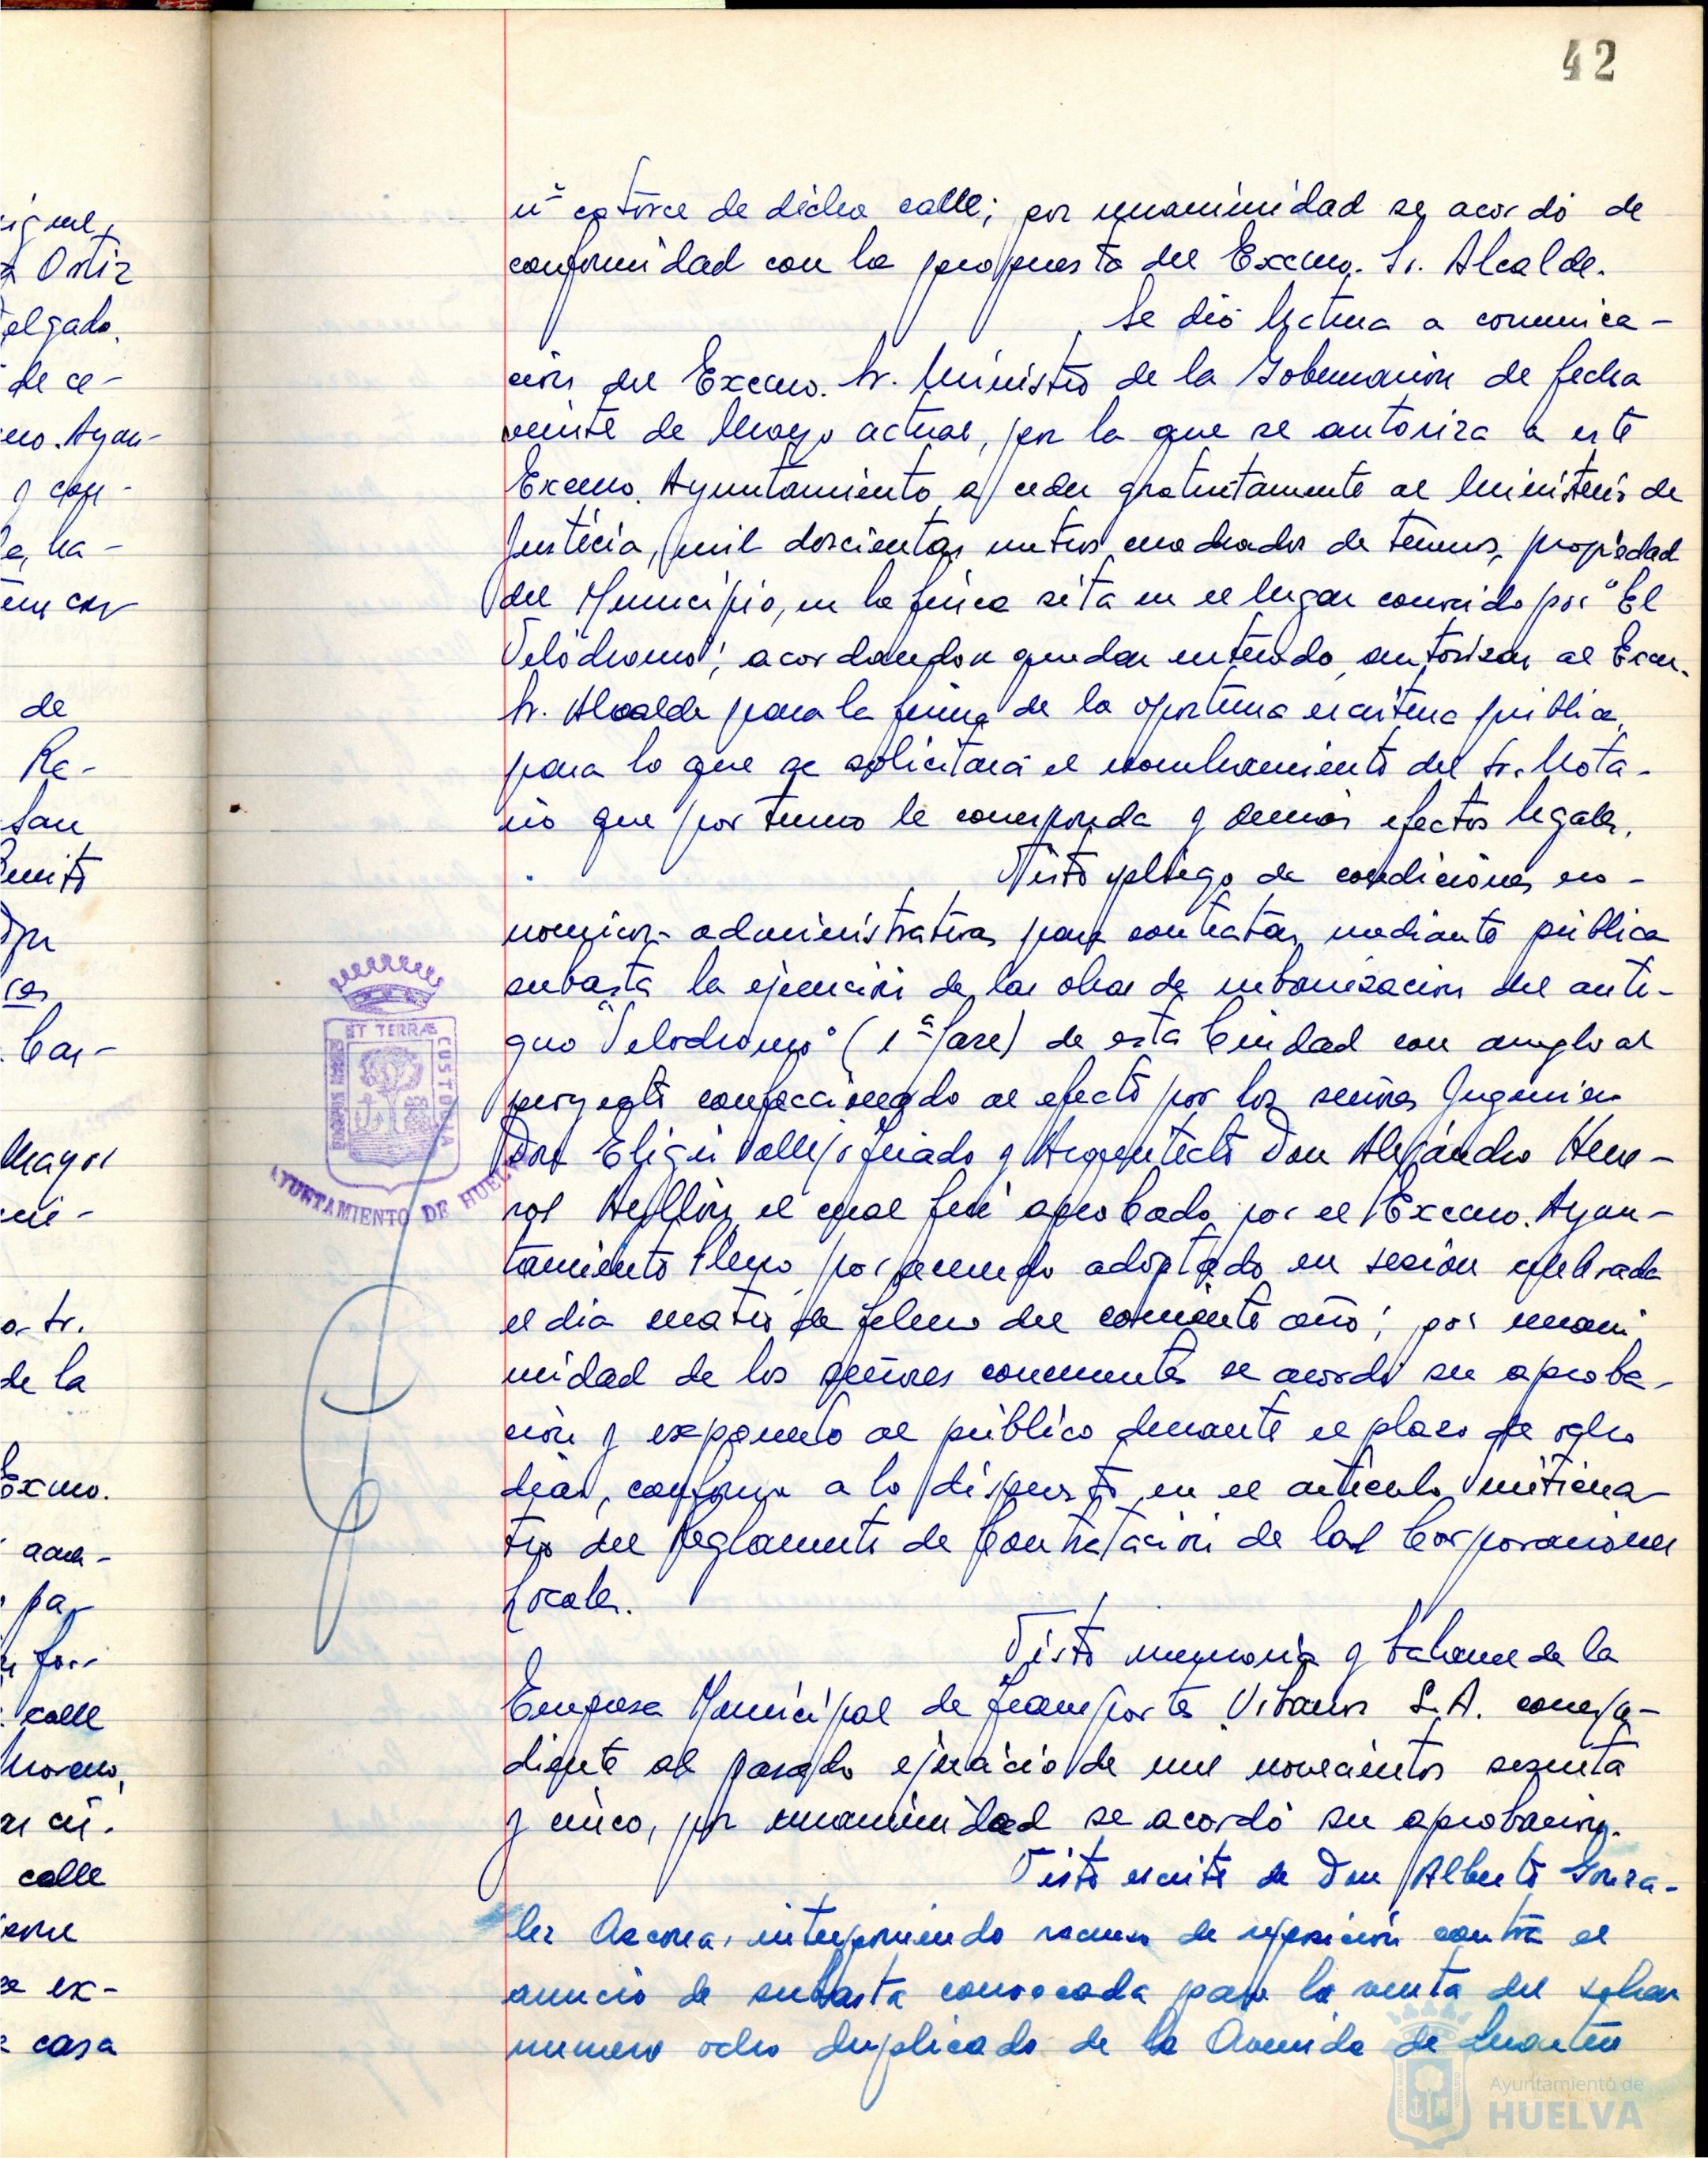 42
nº catorce de dicha calle; por unanimidad se acordó de
conformidad con la propuesta del Excmo. Sr. Alcalde.
Se dió lectura a comunica-
ción del Excmo. Sr. Ministro de la Gobernación de fecha
veinte de Mayo actual, por la que se autoriza a este
Excmo. Ayuntamiento a ceder gratuitamente al Ministerio de
Justicia, mil doscientos metros cuadrados de terreno, propiedad
del Municipio, en la finca sita en el lugar conocido por "El
Velódromo"; acordandose quedar enterado, autorizar al Excm.
Sr. Alcalde para la firma de la oportuna escritura pública,
para lo que se solicitará el nombramiento del Sr. Nota-
rio que por turno le corresponda y demás efectos legales.
Visto pliego de condiciones eco-
nómicos-administrativas para contratar mediante pública
subasta la ejecución de las obras de urbanización del anti-
guo "Velodromo" (1ª fase) de esta Ciudad con arreglo al
proyecto confeccionado al efecto por los señores Ingeniero
Don Eligio Vallejo Criado y Arquitecto Don Alejandro Herre-
ros Ayllón, el cual fué aprobado por el Excmo. Ayun-
tamiento Pleno por acuerdo adoptado en sesión celebrada
el día cuatro de febrero del corriente año; por unani
midad de los señores concurrentes se acordó su aproba-
ción y exponerlo al público durante el plazo de ocho
días, conforme a lo dispuesto en el artículo veinticua-
tro del Reglamento de Contratación de las Corporaciones
Locales.
Visto memoria y balance de la
Empresa Municipal de Transportes Urbanos S.A. correspon-
diente al pasado ejercicio de mil novecientos sesenta
y cinco, por unanimidad se acordó su aprobación.
Visto escrito de Don Alberto Gonza-
lez Azcona, interponiendo recurso de reposición contra el
anuncio de subasta convocada para la venta del solar
numero ocho duplicado de la Avenida de Martín
ET TERRÆ
CUSTODIA
AYUNTAMIENTO DE HUELVA
igual,
Ortiz
elgado.
de ce-
mo. Ayun-
de
Re-
San
Car-
Mayor
o. Sr.
de la
Excmo.
acu-
pa-
for-
calle
Moreno,
calle
ex-
casa
Ayuntamiento de
HUELVA